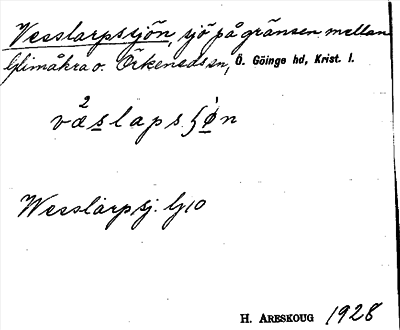 Vesslarpssjön, sjö på gränsen mellan
Glimåkra o. Örkeneds sn, Ö. Göinge hd, Krist. l.
2
væslapsʃø̀n
Wesslarpsj. Gj10
H. ARESKOUG 1928